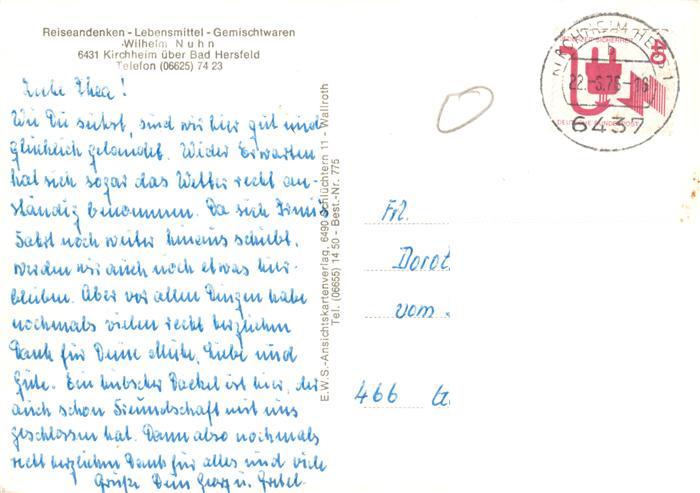 Reiseandenken - Lebensmittel - Gemischtwaren
Wilhelm Nuhn
6431 Kirchheim über Bad Hersfeld
Telefon (06625) 74 23
Liebe Thea!
Wie Du siehst, sind wir hier gut und
glücklich gelandet. Wider Erwarten
hat sich sogar das Wetter recht an-
ständig benommen. Da sich Irmis
Fahrt noch weiter hinaus schiebt,
werden wir auch noch etwas hier-
bleiben. Aber vor allen Dingen habe
nochmals vielen recht herzlichen
Dank für Deine Mühe, Liebe und
Güte. Ein hübscher Dackel ist hier, der
auch schon Freundschaft mit uns
geschlossen hat. Dann also nochmals
recht herzlichen Dank für alles und viele
Grüße Dein Georg u. Gretel.
E.W.S.-Ansichtskartenverlag, 6490 Schlüchtern 11 - Wallroth
Tel. (06655) 14 50 - Best.-Nr. 775
KIRCHHEIM, HESS 1
b
22.-6.76-16
6437
40
DEUTSCHE BUNDESPOST
Frl.
Dorot
vom
466